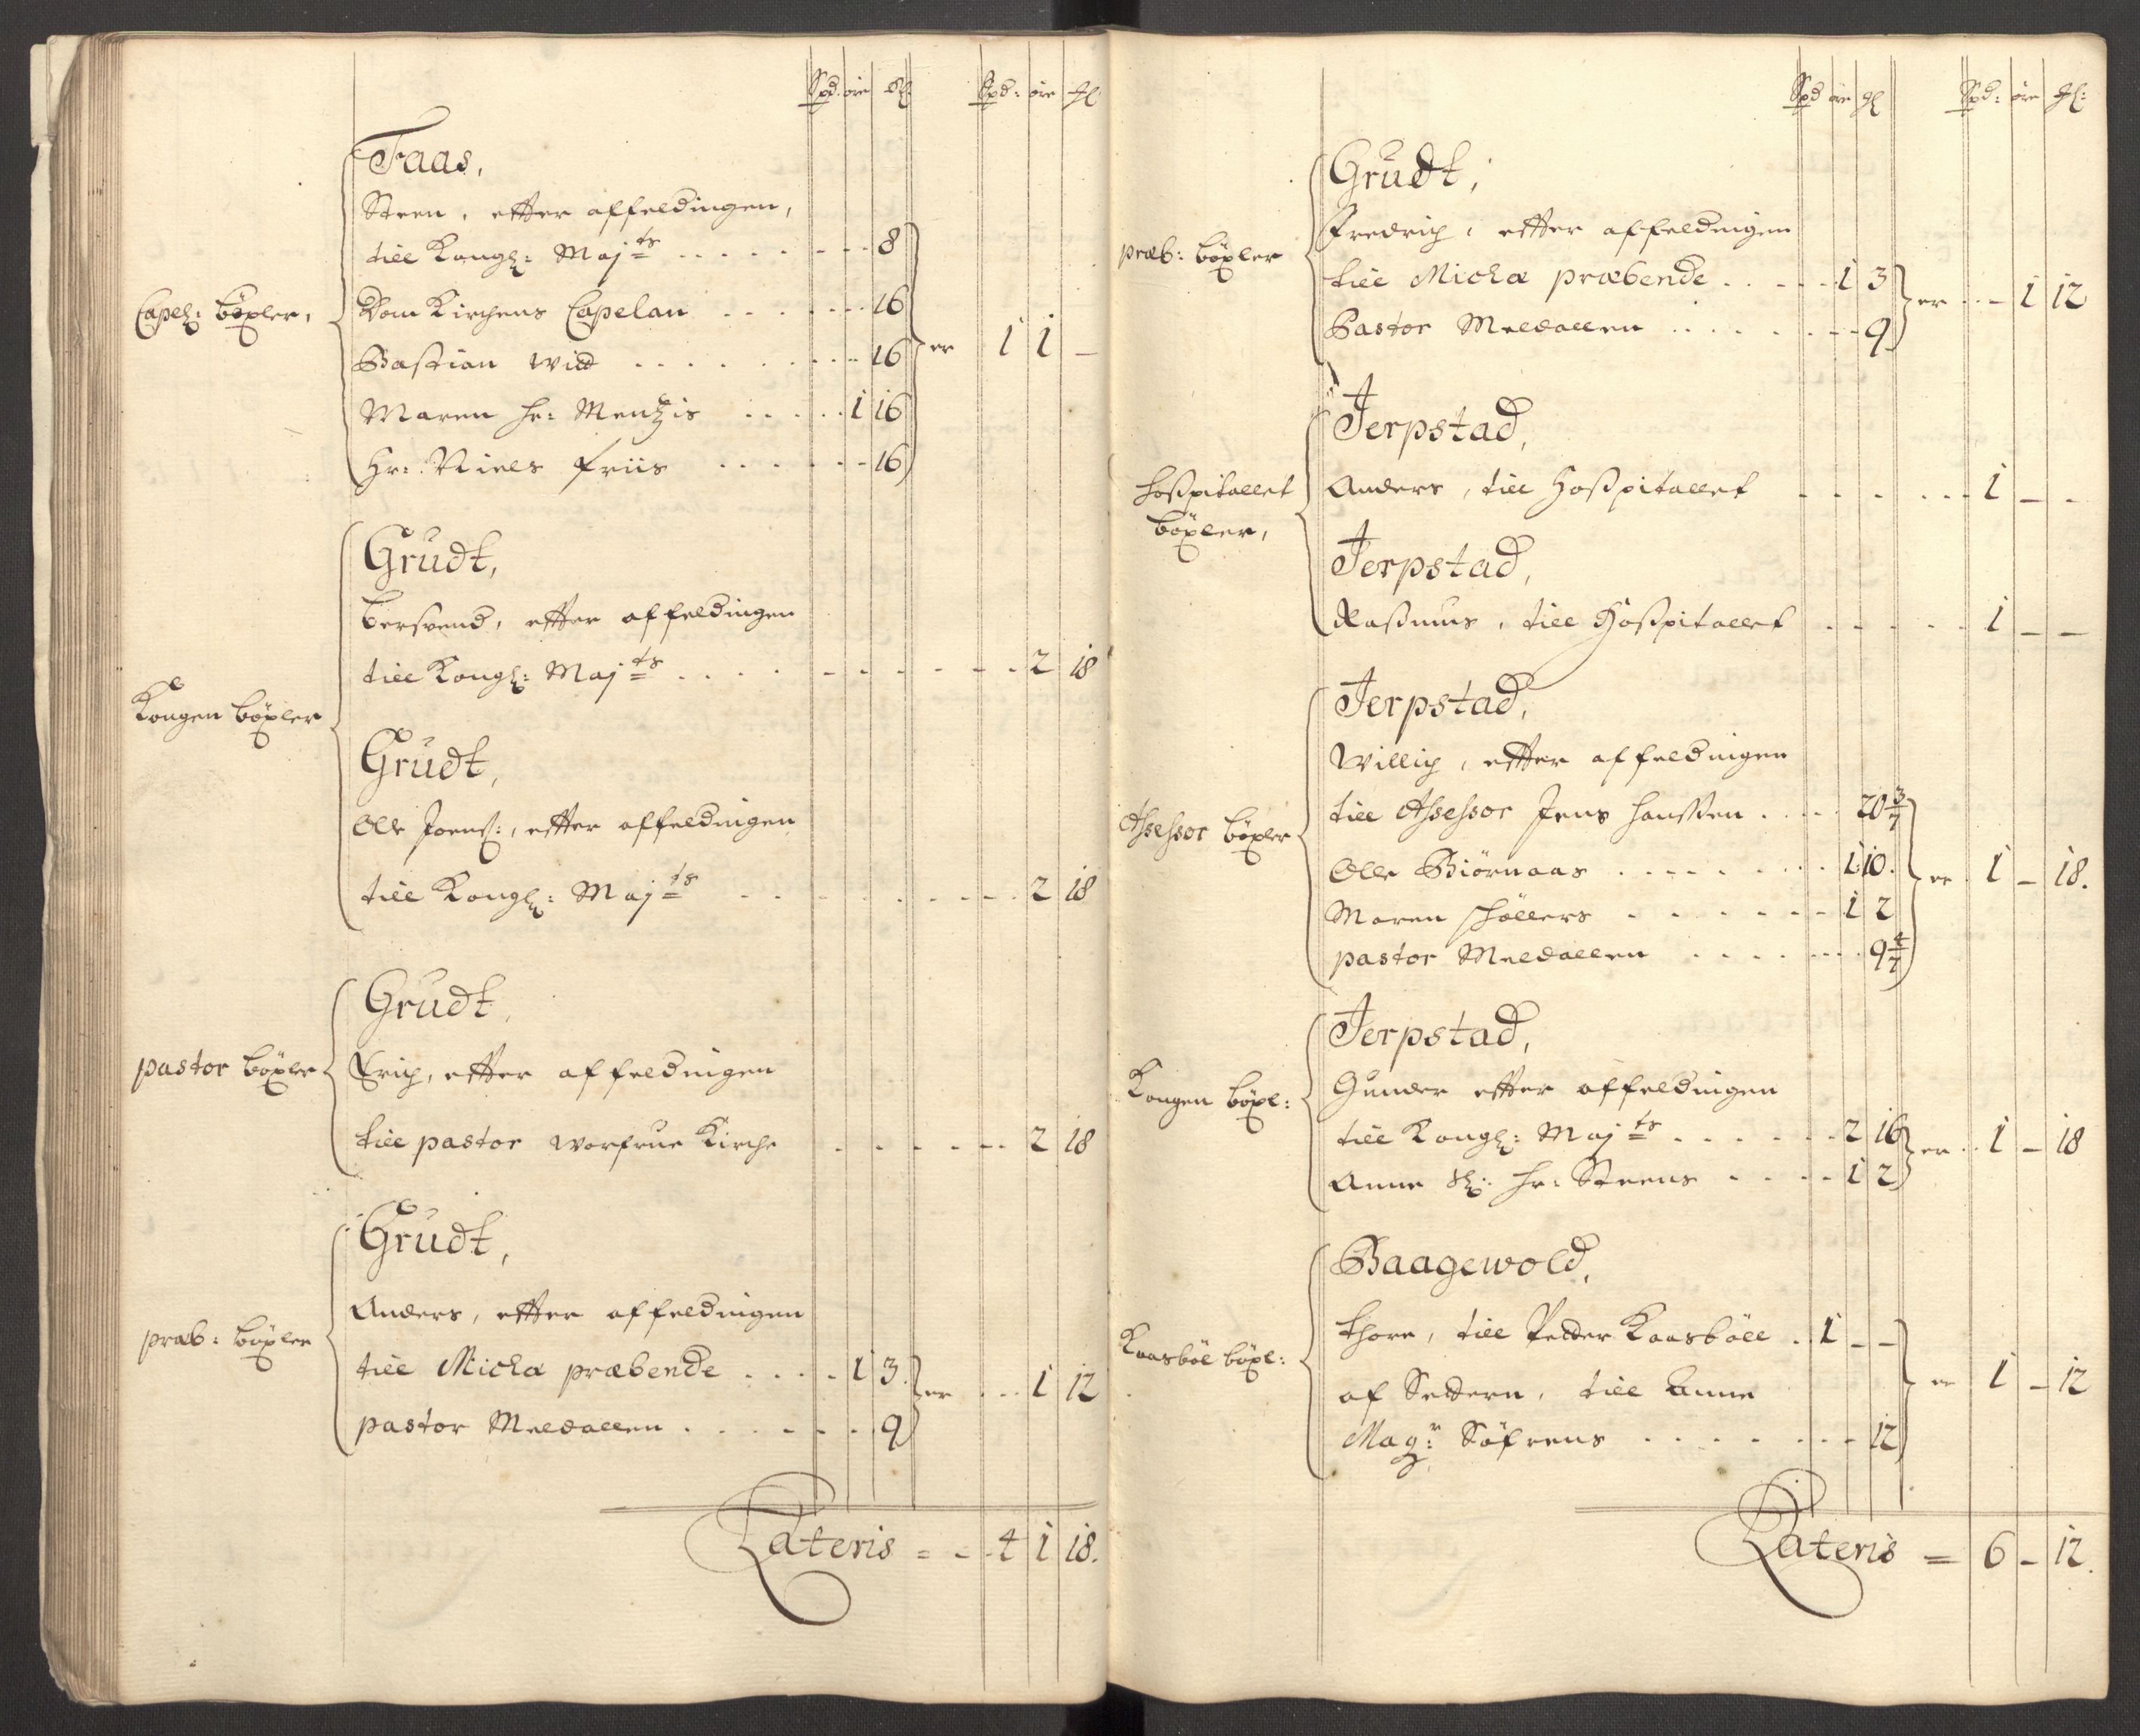 Spd. øre Ml Spd: øre Ml
Faas,
Steen, efter affeldingen,
till Kongl: Majts . . . . . 8
Capel: böxler,
Dom Kirchens Capelan . . . . . 16
Bastian wid . . . . . 16 er 1 1 –
Maren hr: Mentzis . . . . . 1 16
Hr: Niels friis . . . . . 16
Grudt,
Bersvend, efter affeldingen
till Kongl: Majts . . . . . 2 18
Kongen böxler
Grudt,
Ole Joens:, efter affeldingen
till Kongl: Majts . . . . . 2 18
Grudt,
pastor böxler
Erich, efter affeldingen
till pastor worfrue Kirche . . . . . 2 18
Grudt,
Anders, efter affeldingen
præb: böxler
till Micha præbende . . . . 1 3. er . . . 1 12
pastor Meldallen . . . . . 9
Lateris = - - 4 1 18.
Spd øre Ml Spd: øre Ml:
Grudt,
Fredrich, efter affeldingen
præb: böxler
till Micha præbende . . . . . 1 3 er . . – 1 12
Pastor Meldallen . . . . . 9
Jerpstad,
hospitallet
böxler,
Anders, till Hospitallet . . . . . 1 – -
Jerpstad,
Rasmus, till Hospitallet . . . . . 1 – –
Jerpstad,
Willich, efter affeldingen
Assessor böxler
till Assessor Jens hanssen . . . . 20 3/7
Olle Biörnaas . . . . . 1 10. er . 1 – 18.
Maren schöllers . . . . . 1 2
pastor Meldallen . . . . . 9 4/7
Jerpstad,
Kongen böxl:
Gunder efter affeldingen
till Kongl: Majts . . . . . 2 16 er . . 1 – 18
Anne Sl: hr: Steens . . . . 1 2
Baagewold,
Kaasböl böxl:
Thore, till Peder Kaasböll . 1 – –
af Sædern, till Anne er 1 – 12
Magr: Söfrens . . . . . 12
Lateris = 6 – 12.